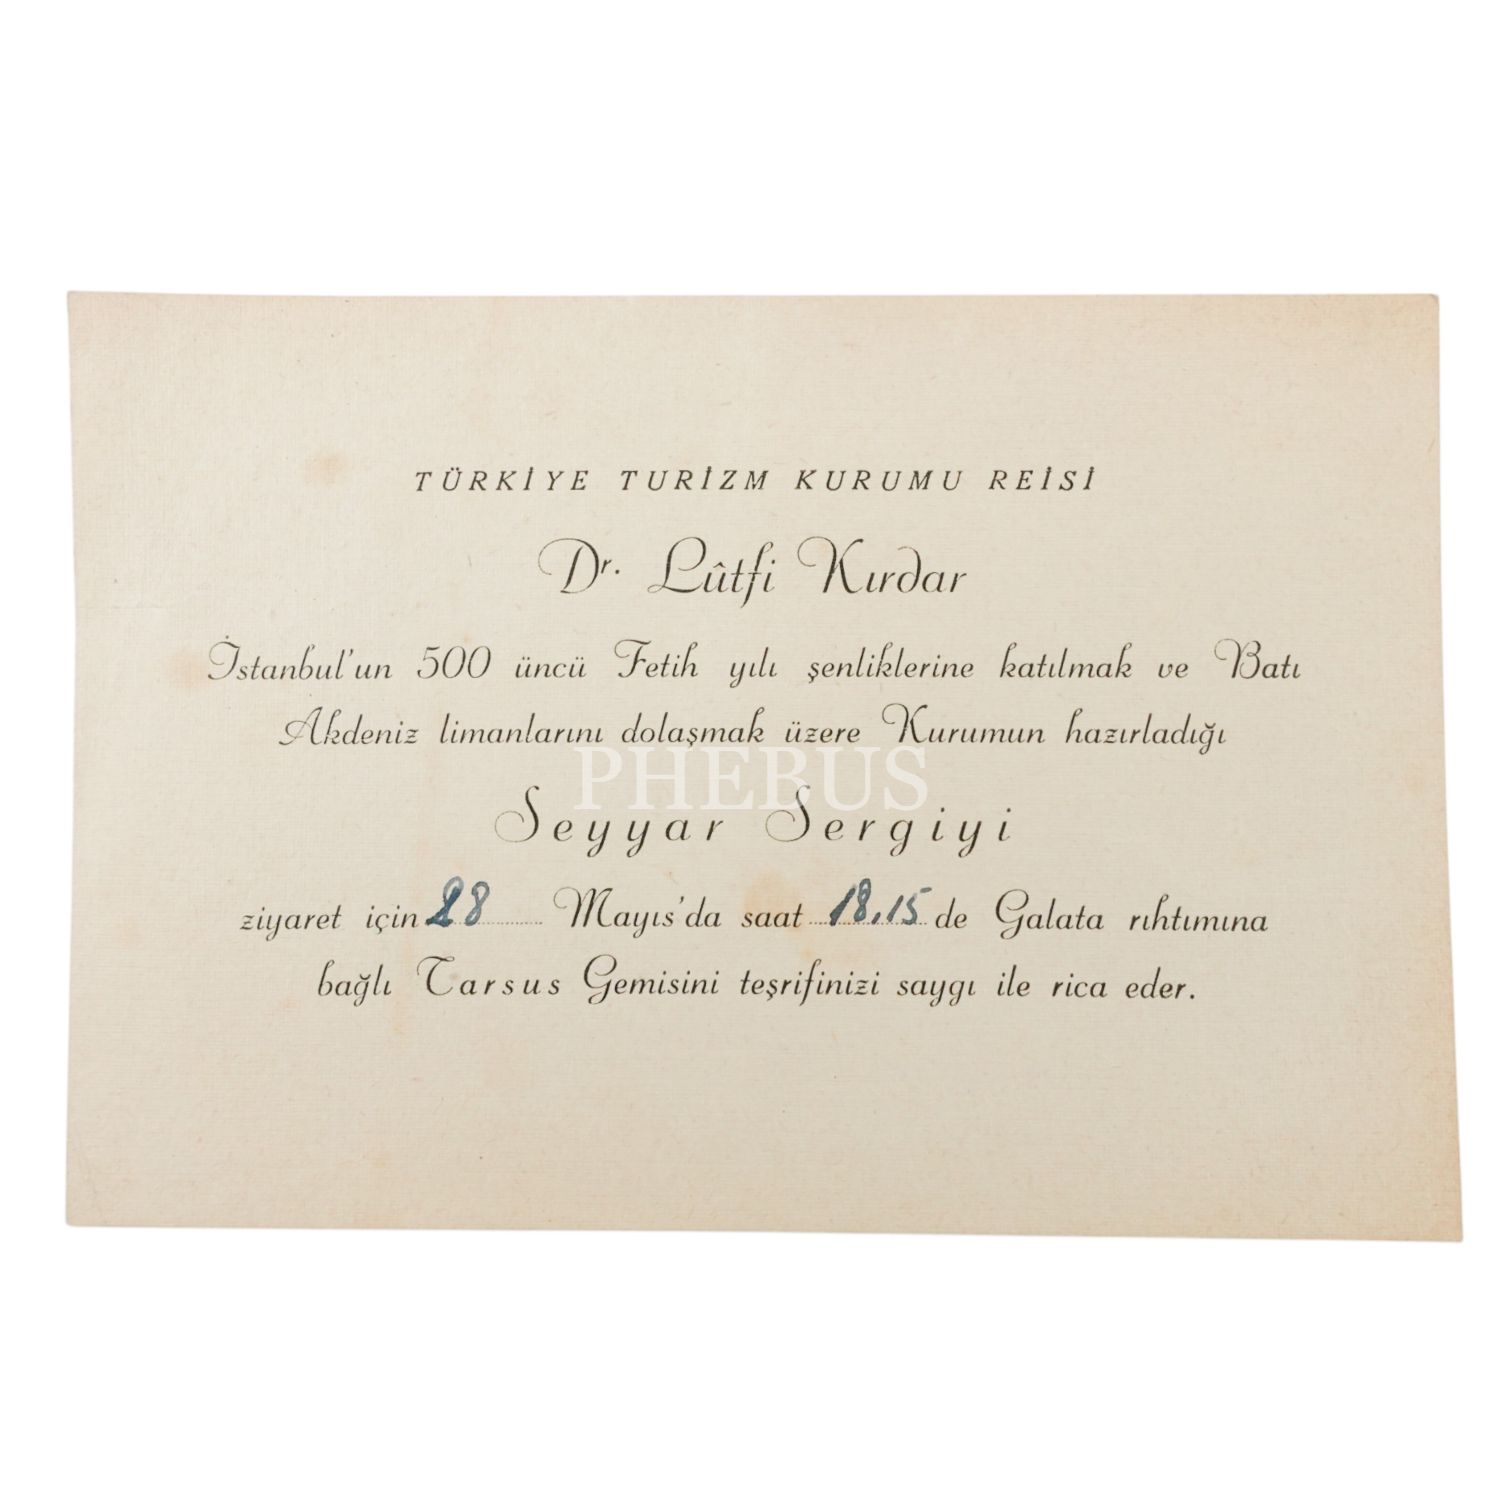 TÜRKİYE TURİZM KURUMU REİSİ
Dr. Lûtfi Kırdar
İstanbul'un 500 üncü Fetih yılı şenliklerine katılmak ve Batı
Akdeniz limanlarını dolaşmak üzere Kurumun hazırladığı
PHEBUS
Seyyar Sergiyi
ziyaret için 28 Mayıs'da saat 18.15 de Galata rıhtımına
bağlı Tarsus Gemisini teşrifinizi saygı ile rica eder.